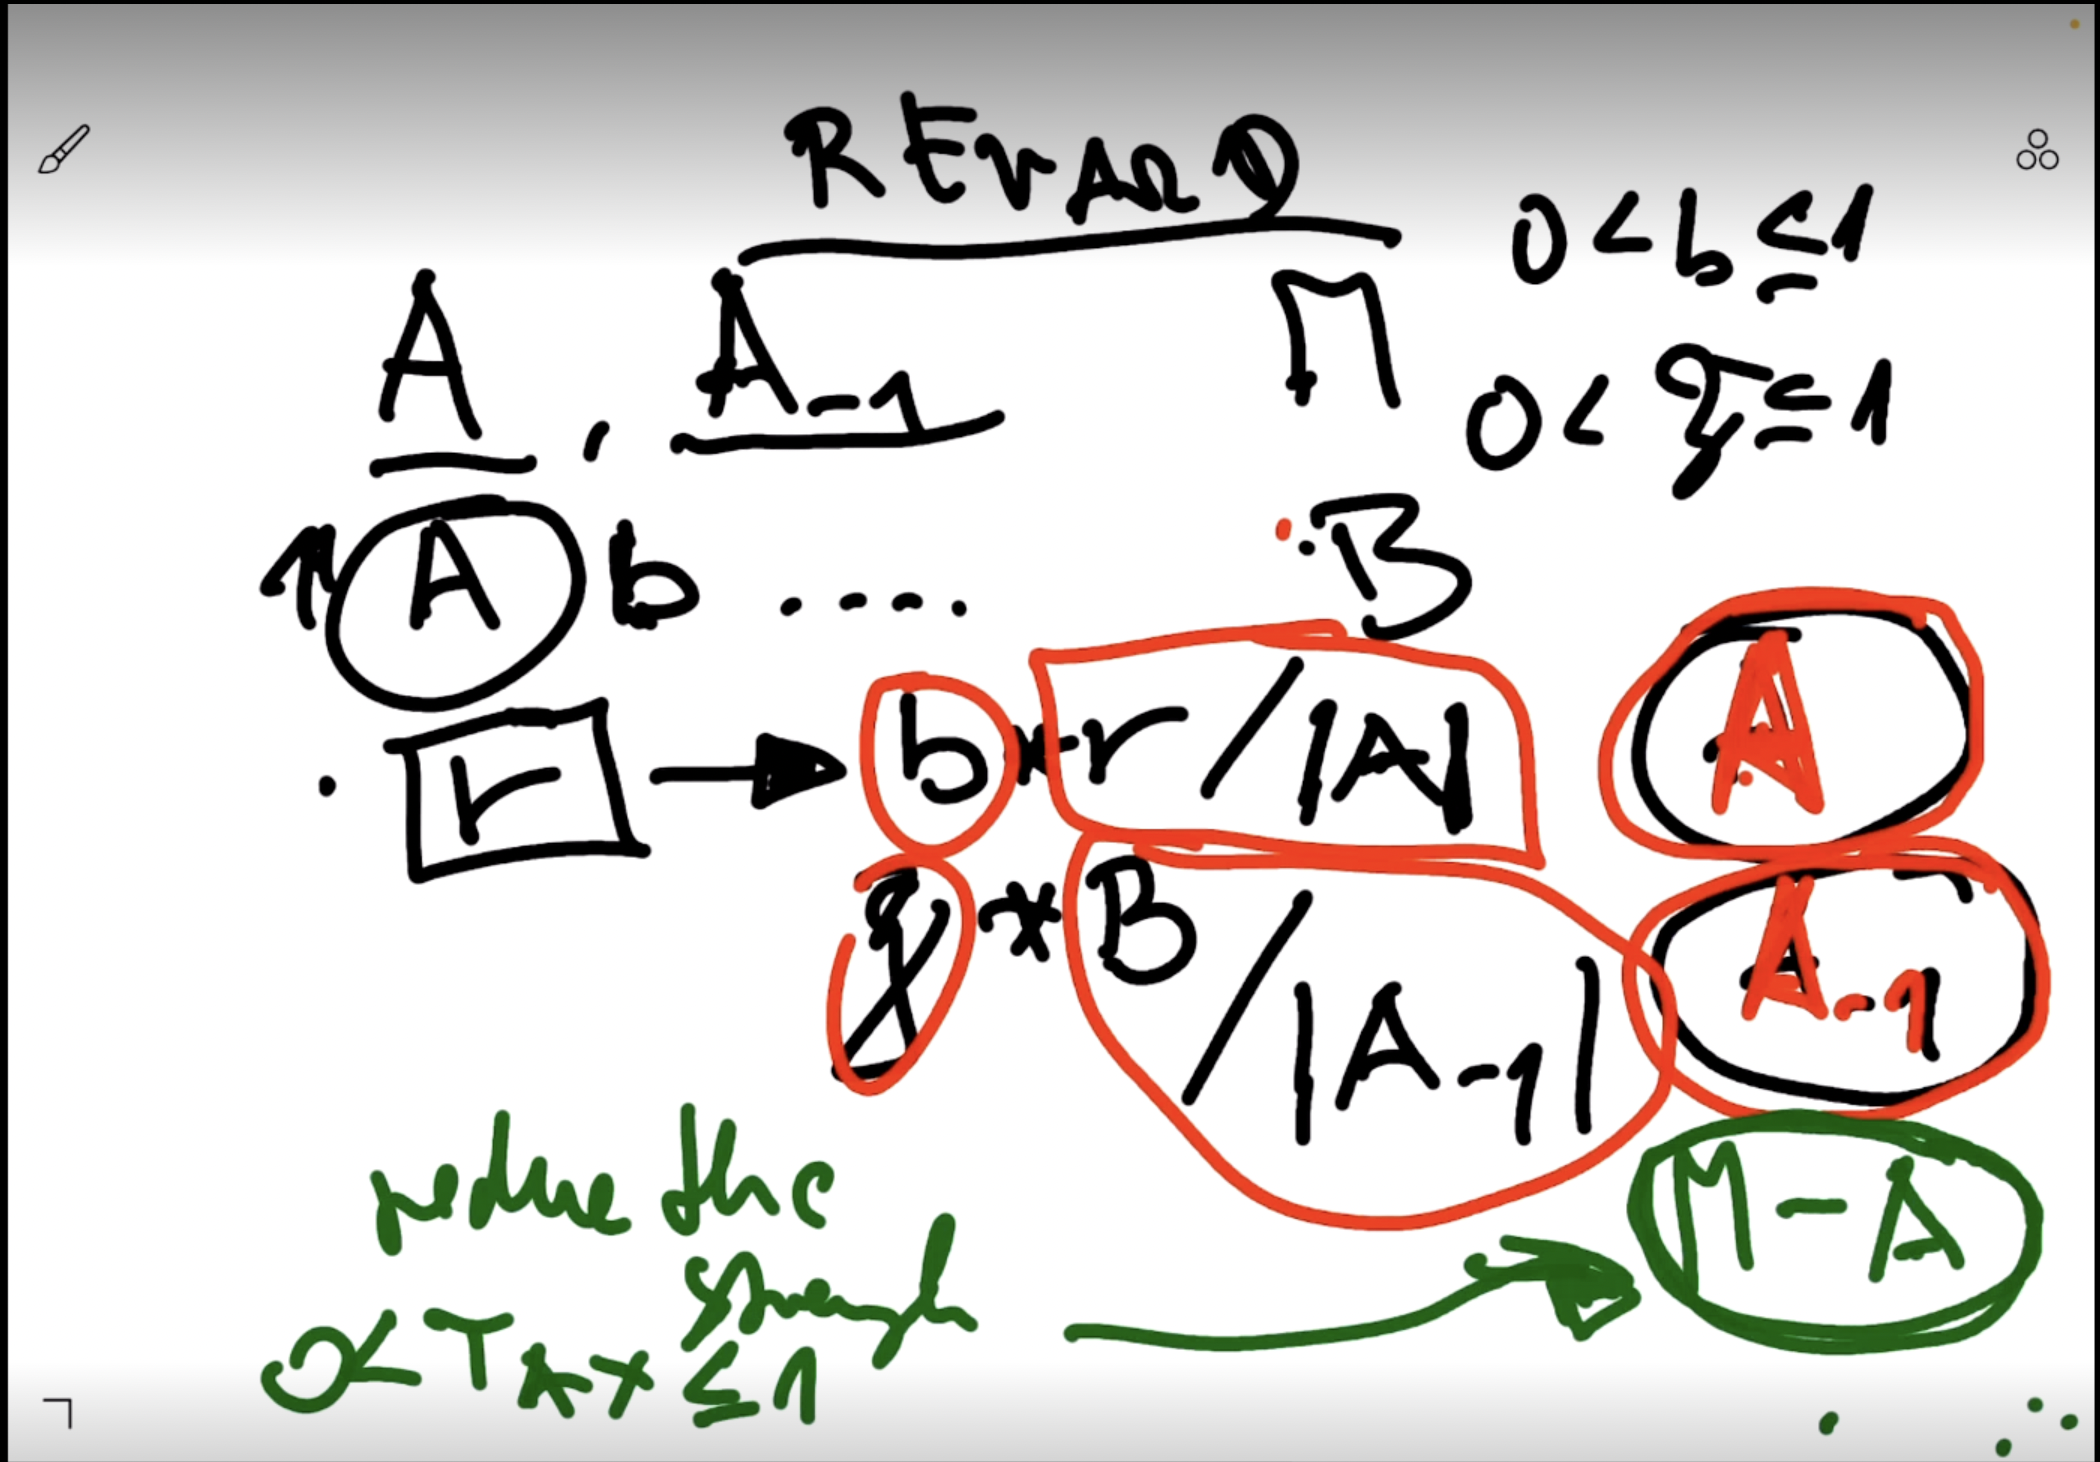 REWARD
0 < b ≤ 1
A , A-1 M
0 < γ ≤ 1
↑ A b .... B
. r → b * r / |A| A
γ * B / |A-1| A-1
reduce the strength M - A
0 < TAX ≤ 1